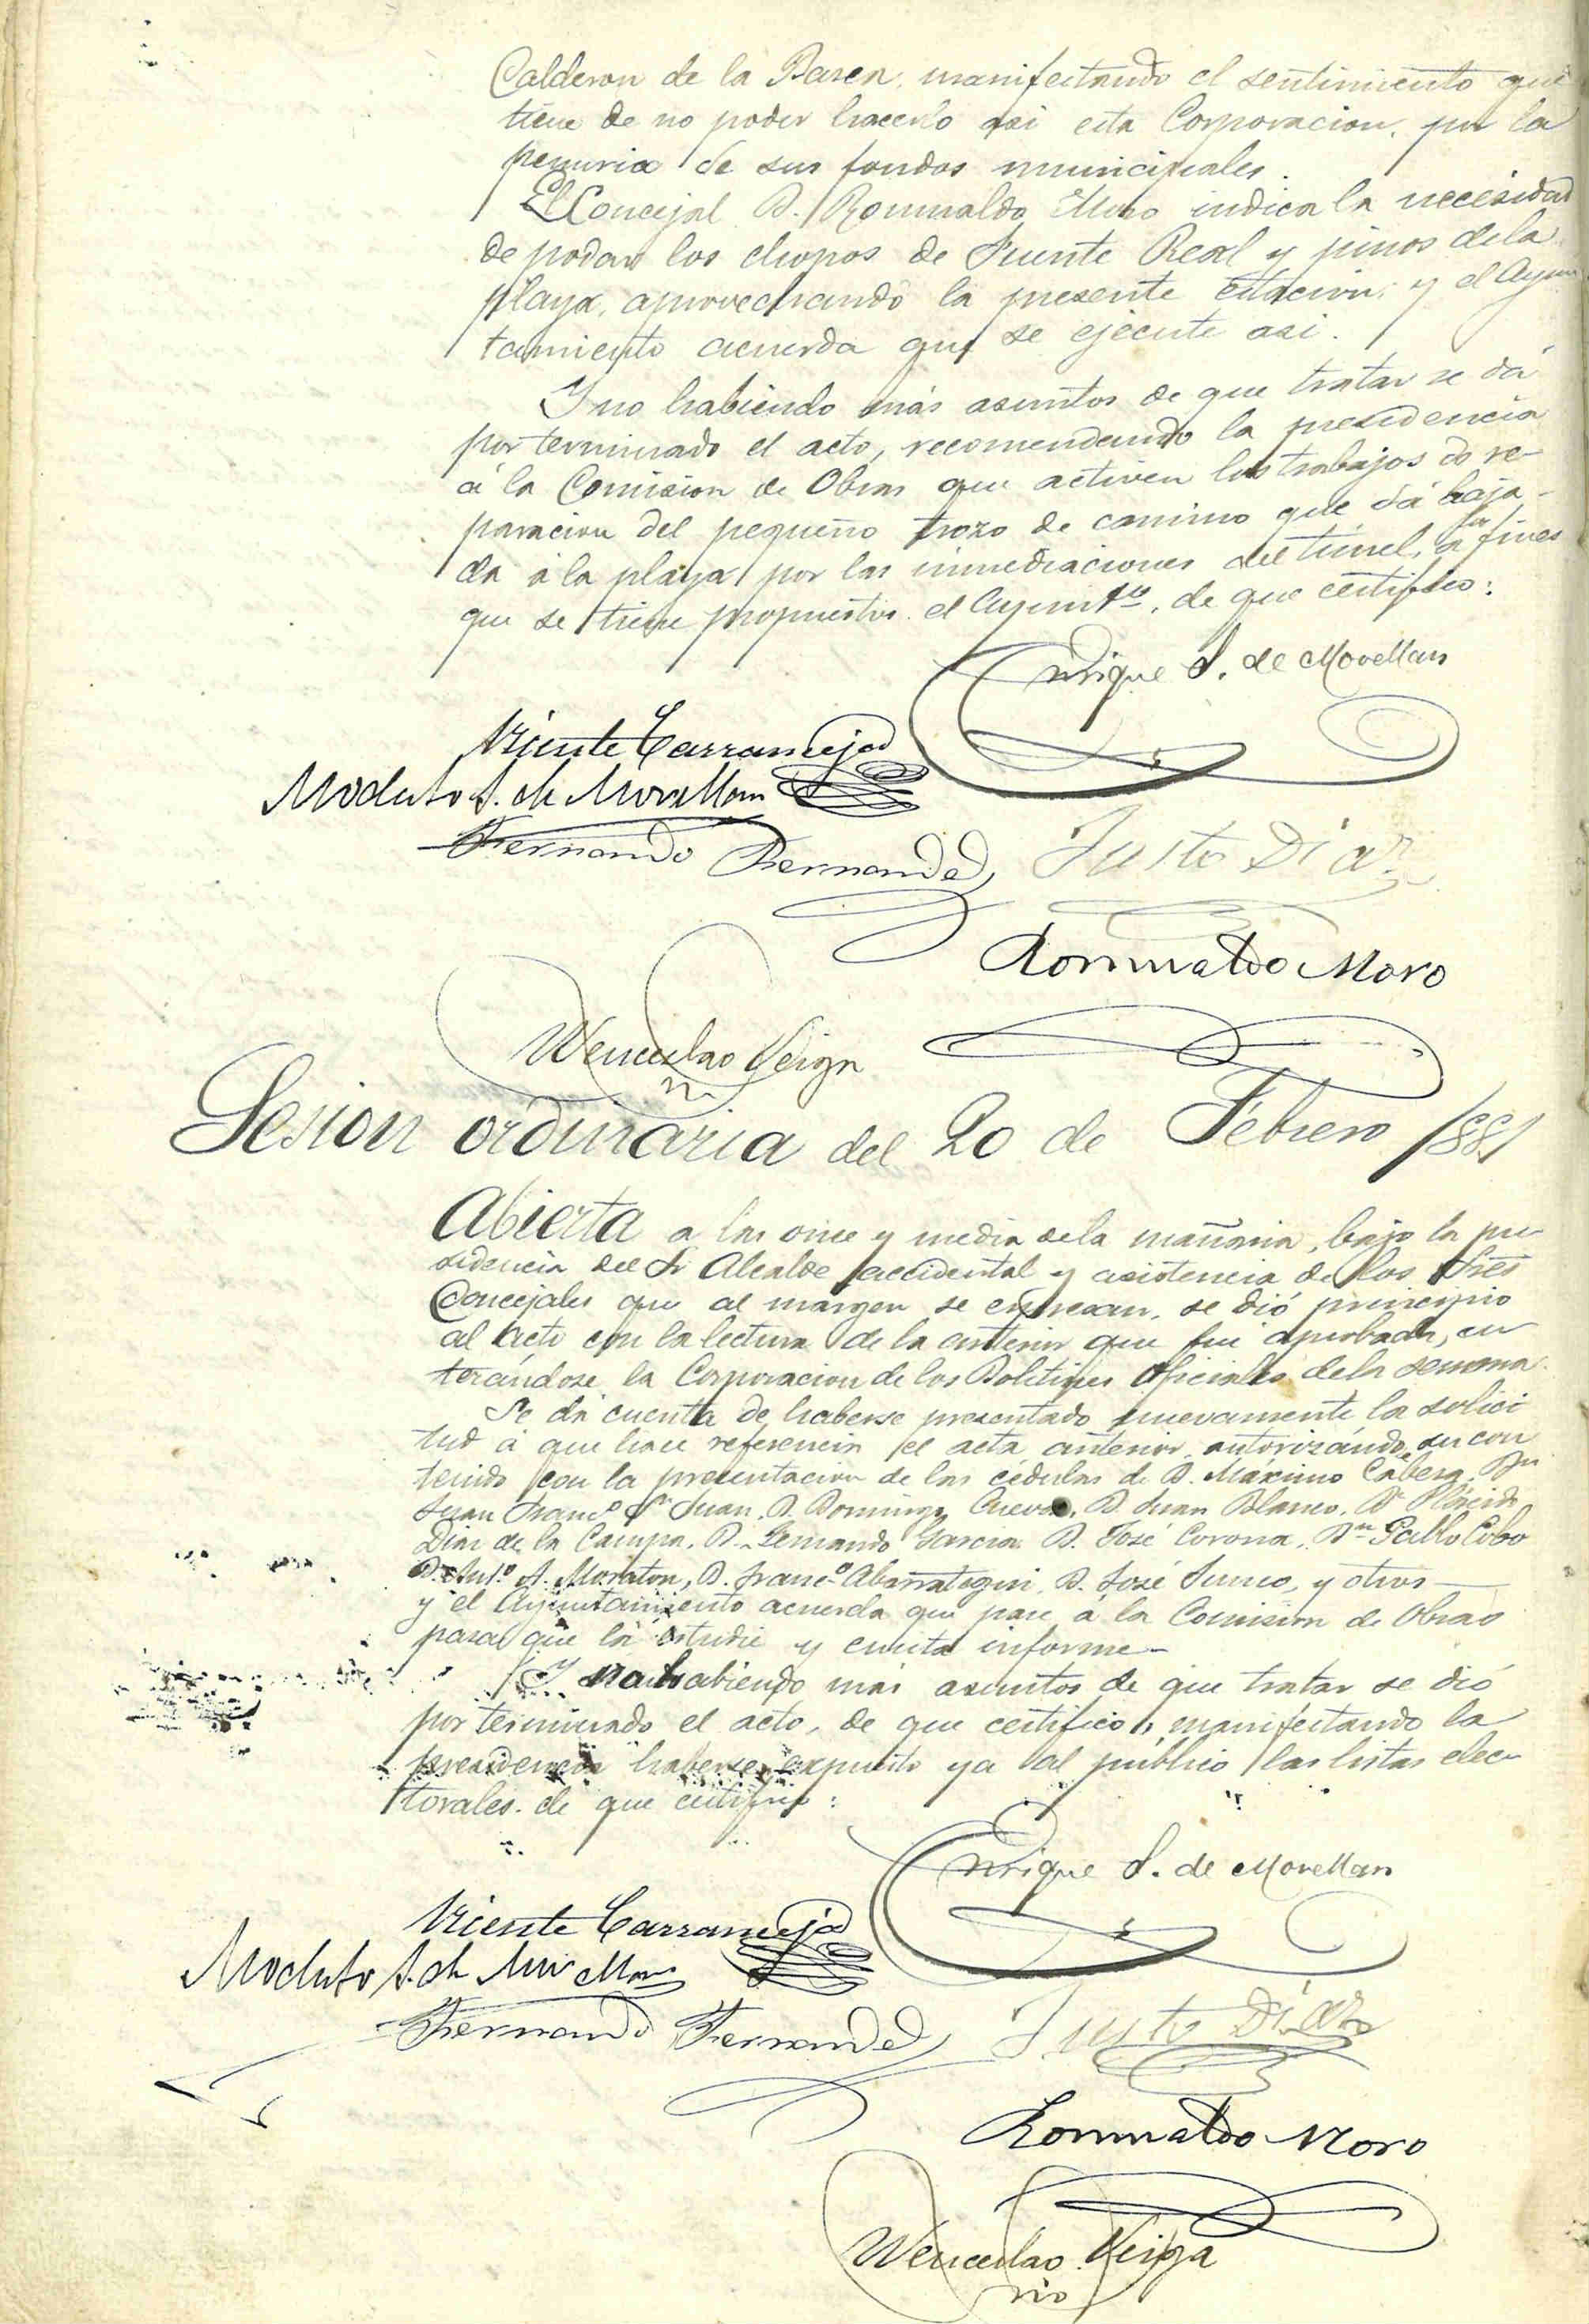 Calderon de la Barca, manifestando el sentimiento que
tiene de no poder hacerlo asi esta Corporacion, por la
penuria de sus fondos municipales.
El Concejal D. Romualdo Moro indica la necesidad
de podar los chopos de Fuente Real y pinos de la
playa, aprovechando la presente estacion; y el Ayun
tamiento acuerda que se ejecute asi.
Y no habiendo más asuntos de que tratar se dá
por terminado el acto, recomendando la presidencia
á la Comision de Obras que activen los trabajos de re-
paracion del pequeño trozo de camino que dá baja-
da á la playa por las inmediaciones del túnel, a los fines
que se tiene propuestos el Ayunt.º, de que certifico:
Enrique S. de Movellan
Vicente Carrancejas
Modesto S. de Movellan
Fernando Fernandez
Justo Diaz
Romualdo Moro
Wenceslao Veiga
Sesion ordinaria del 20 de Febrero 1881
Abierta a las once y media de la mañana, bajo la pre
sidencia del Sr Alcalde accidental y asistencia de los Sres
Concejales que al margen se espresan, se dió principio
al acto con la lectura de la anterior que fué aprobada, en
terándose la Corporacion de los Boletines Oficiales de la semana.
Se dá cuenta de haberse presentado nuevamente la solici
tud á que hace referencia el acta anterior, autorizándo su con
tenido con la presentacion de las cédulas de D. Máximo Cabeza, Dn
Juan Franc.º Sn Juan, D. Domingo Cueva, D. Juan Blanco, Dn Plácido
Diaz de la Campa, D. Fernando Garcia, D. José Corona, Dn Pablo Cobo
D. Ant.º S. Moraton, D. Franc.º Abarrategui, D. José Junco, y otros
y el Ayuntamiento acuerda que pase á la Comision de Obras
para que la estudie y emita informe
Y no habiendo más asuntos de que tratar se dió
por terminado el acto, de que certifico, manifestando la
presidencia haberse expuesto ya al público las listas elec
torales. de que certifico:
Enrique S. de Movellan
Vicente Carrancejas
Modesto S. de Movellan
Fernando Fernandez
Justo Diaz
Romualdo Moro
Wenceslao Veiga